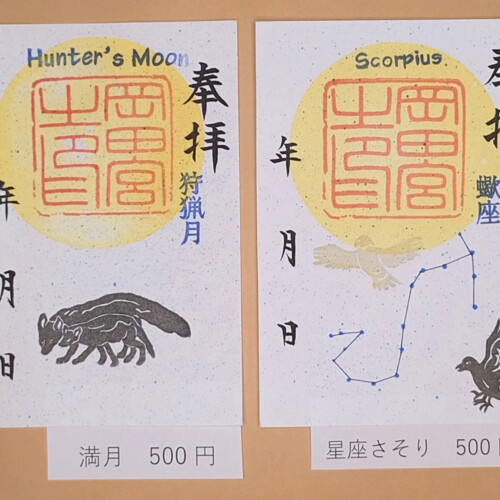 Hunter's Moon
奉拝
狩猟月
岡田宮
之印
年
月
日
満月 500円
Scorpius
奉拝
蠍座
岡田宮
之印
年
月
日
星座さそり 500円